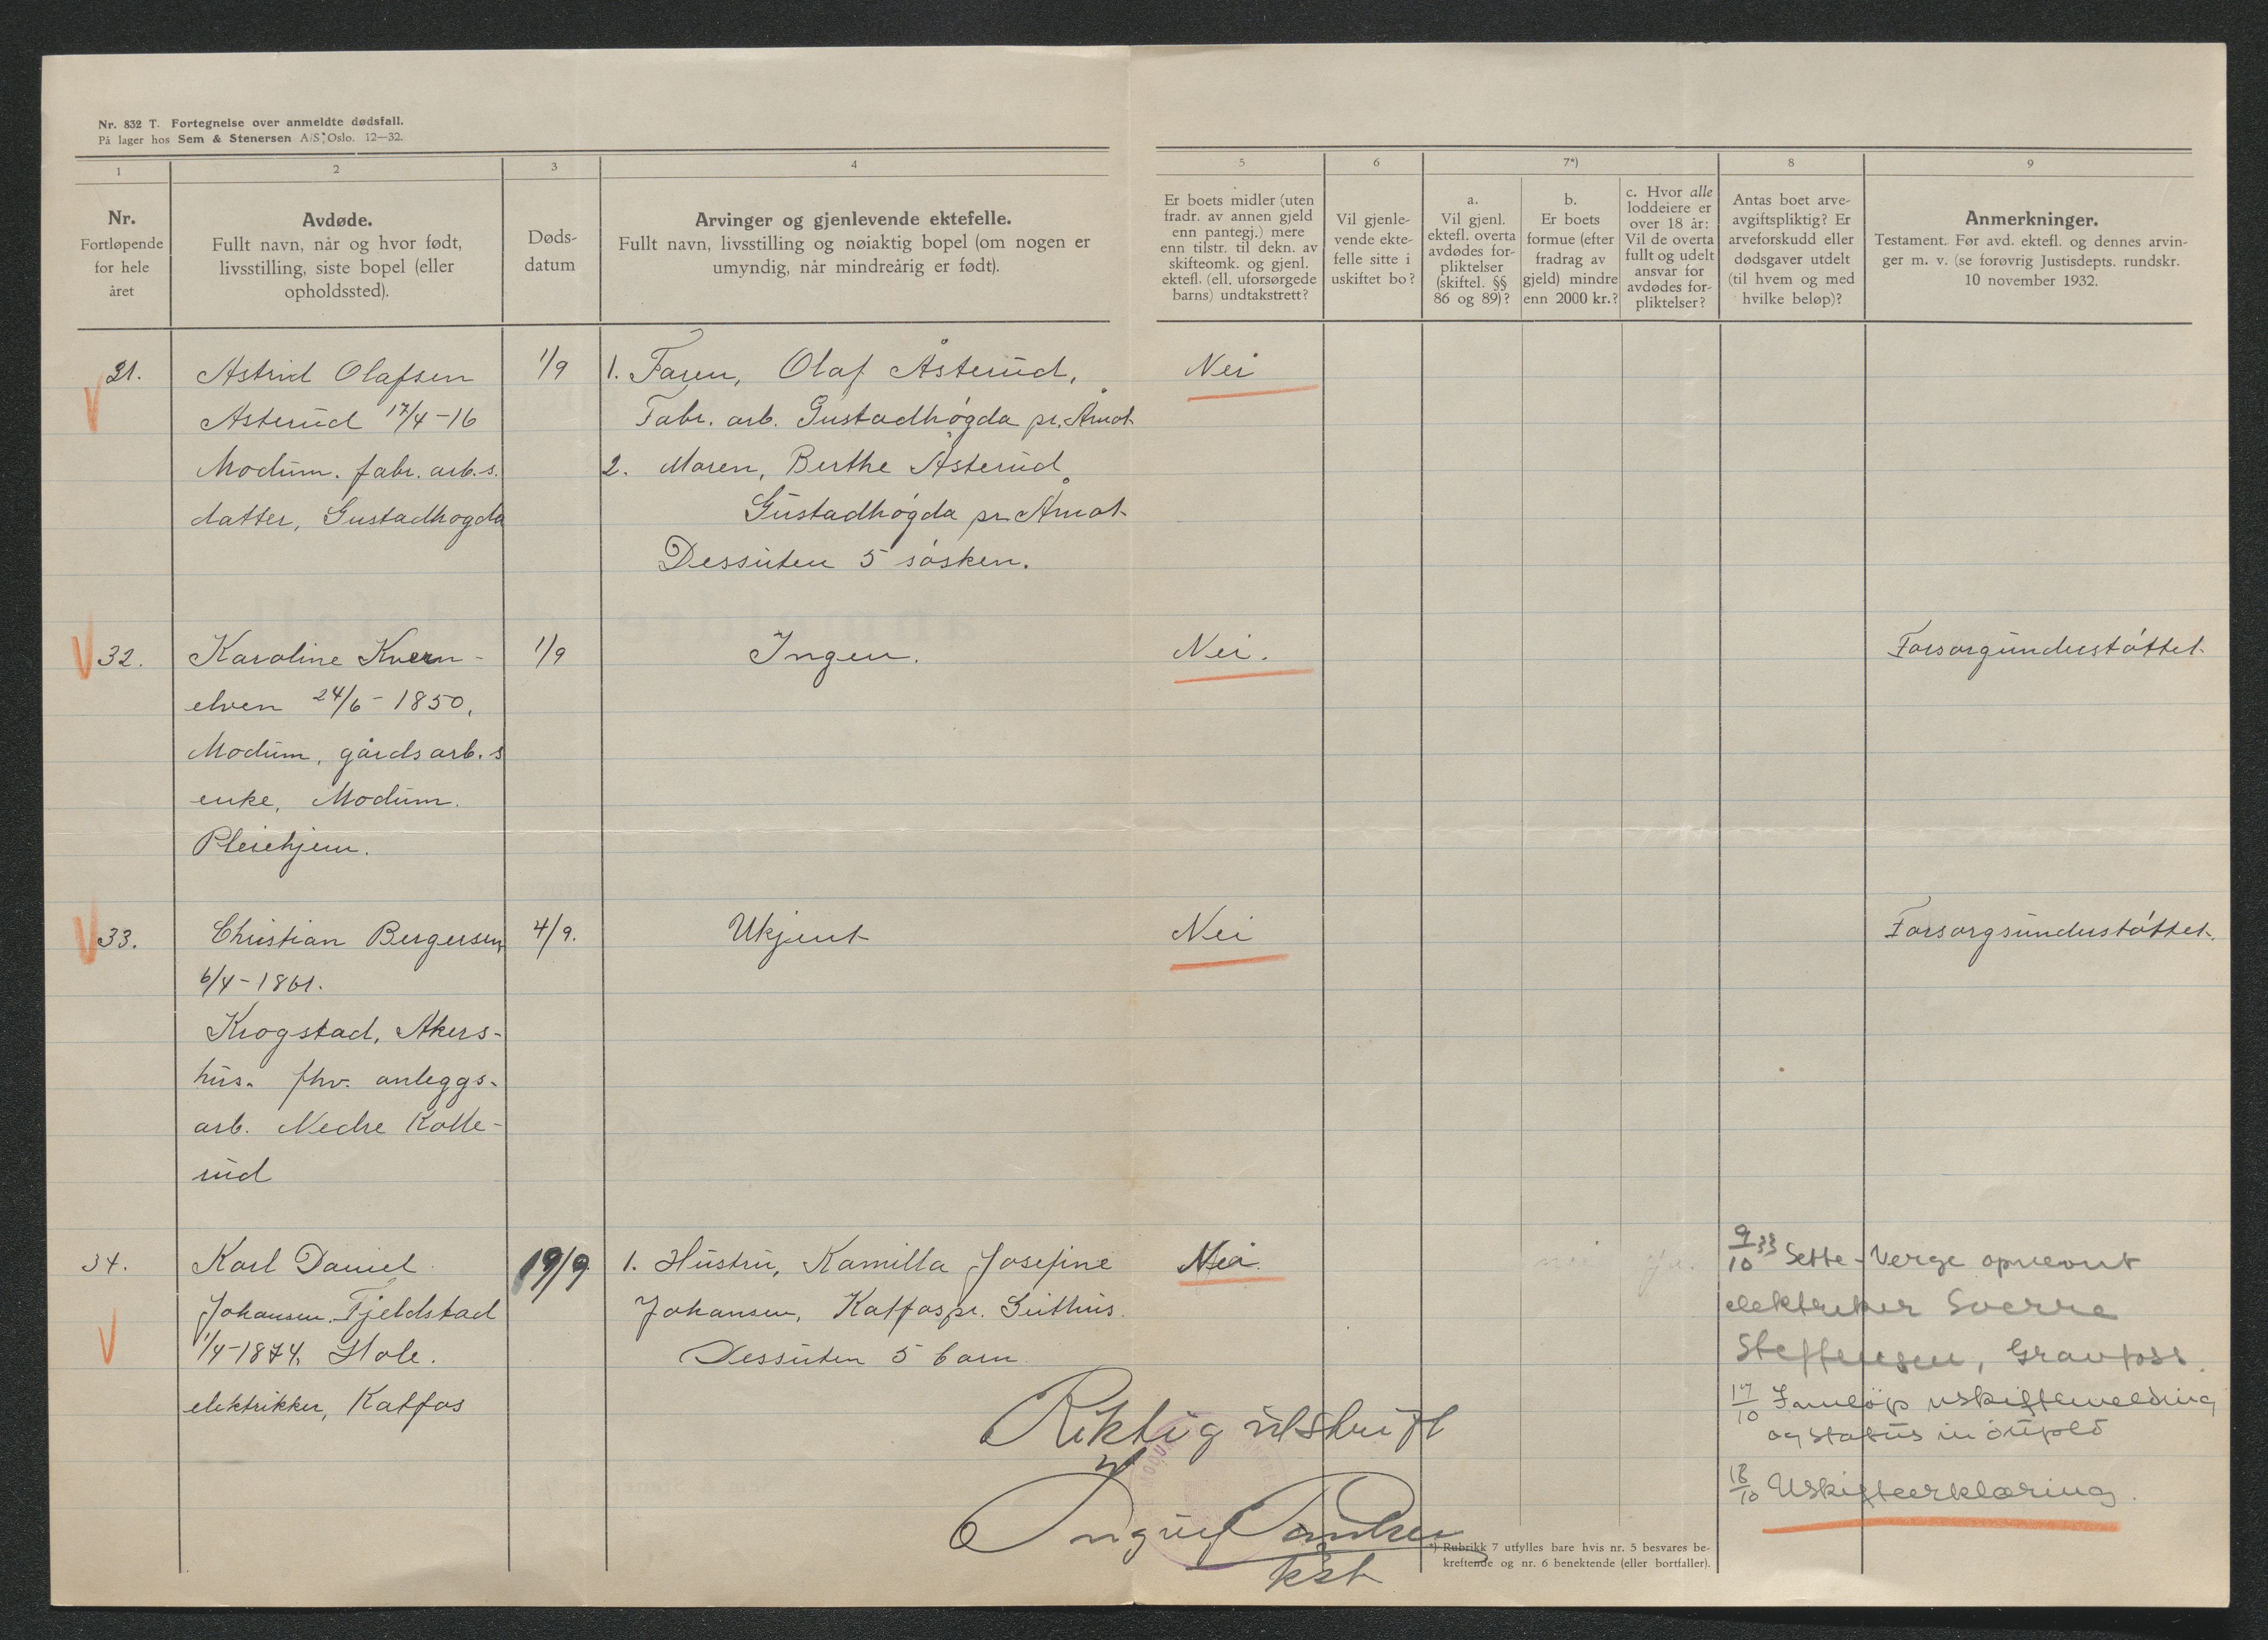 Nr. 832 T. Fortegnelse over anmeldte dødsfall.
På lager hos Sem & Stenersen A/S, Oslo. 12—32.
1
2
3
4
5
6
7*)
8
9
Nr.
Fortløpende
for hele
året
Avdøde.
Fullt navn, når og hvor født,
livsstilling, siste bopel (eller
opholdssted).
Døds-
datum
Arvinger og gjenlevende ektefelle.
Fullt navn, livsstilling og nøiaktig bopel (om nogen er
umyndig, når mindreårig er født).
Er boets midler (uten
fradr. av annen gjeld
enn pantegj.) mere
enn tilstr. til dekn. av
skifteomk. og gjenl.
ektefl. (ell. uforsørgede
barns) undtakstrett?
Vil gjenle-
vende ekte-
felle sitte i
uskiftet bo?
a.
Vil gjenl.
ektefl. overta
avdødes for-
pliktelser
(skiftel. §§
86 og 89)?
b.
Er boets
formue (efter
fradrag av
gjeld) mindre
enn 2000 kr.?
c. Hvor alle
loddeiere er
over 18 år:
Vil de overta
fullt og udelt
ansvar for
avdødes for-
pliktelser?
Antas boet arve-
avgiftspliktig? Er
arveforskudd eller
dødsgaver utdelt
(til hvem og med
hvilke beløp)?
Anmerkninger.
Testament. Før avd. ektefl. og dennes arvin-
ger m. v. (se forøvrig Justisdepts. rundskr.
10 november 1932.
31.
Astrid Olafsen
Asterud 17/4-16
Modum. fabr. arb.s.
datter, Gustadhøgda
1/9
1. Faren, Olaf Åsterud,
Fabr. arb. Gustadhøgda pr. Åmot
2. Moren, Berthe Åsterud
Gustadhøgda pr. Åmot
Dessuten 5 søsken.
Nei
32.
Karoline Kvern-
elven 24/6-1850,
Modum, gårdsarb.s
enke, Modum.
Pleiehjem.
1/9
Ingen.
Nei.
Forsorgunderstøttet
33.
Christian Bergersen,
6/4-1861.
Krogstad, Akers-
hus. fhv. anleggs-
arb. Nedre Kolle-
rud
4/9.
Ukjent
Nei
Forsorgsunderstøttet.
34.
Karl Daniel
Johansen. Fjeldstad
1/4-1874, Hole.
elektrikker, Katfos
19/9
1. Hustru, Kamilla Josefine
Johansen, Katfos pr. Geithus.
Dessuten 5 barn.
Nei.
nei ja.
9/10 33 Sette-Verge opnevnt
elektriker Sverre
Steffensen, Gravfoss.
17/10 Innløp uskiftemelding
og status
18/10 Uskifteerklæring.
Riktig utskrift
*) Rubrikk 7 utfylles bare hvis nr. 5 besvares be-
kreftende og nr. 6 benektende (eller bortfaller).